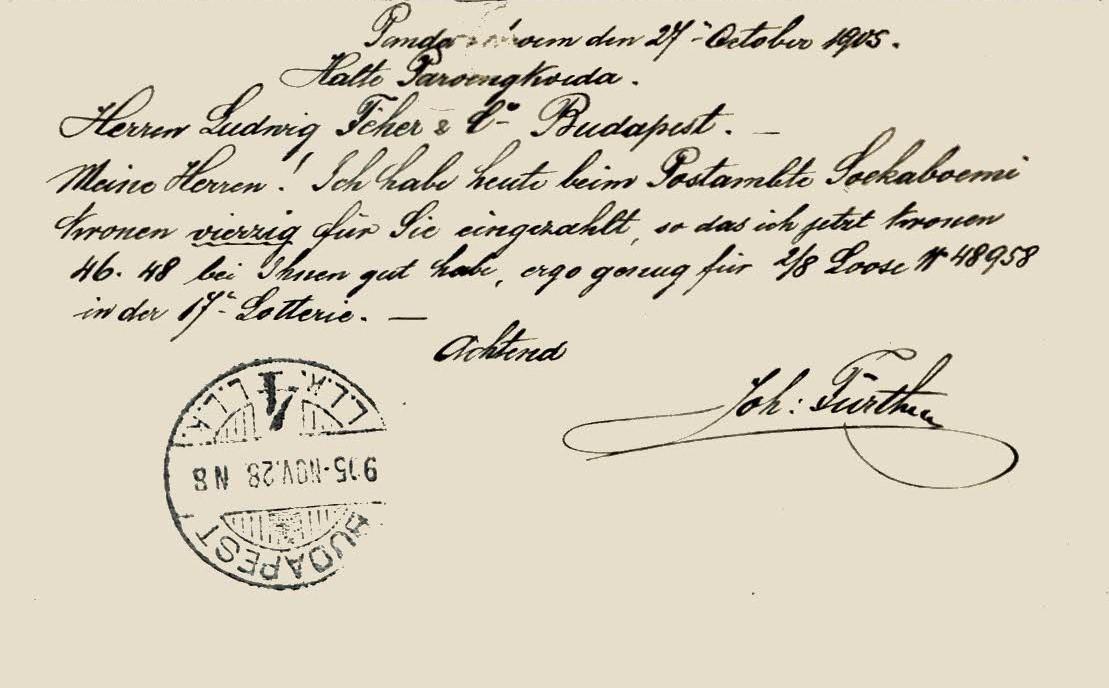 den 27ᵗ October 1905.
Halte Paroengkoeda.
Herren Ludwig Feher & Cº Budapest. —
Meine Herren! Ich habe heute beim Postambte Soekaboemi
Kronen vierzig für Sie eingezahlt, so das ich jetzt Kronen
46.48 bei Ihnen gut habe, ergo genug für 2/8 Loose Nº 48958
in der 17ᵗ Lotterie. —
Achtend
Joh:
BUDAPEST
905-NOV.28. N8